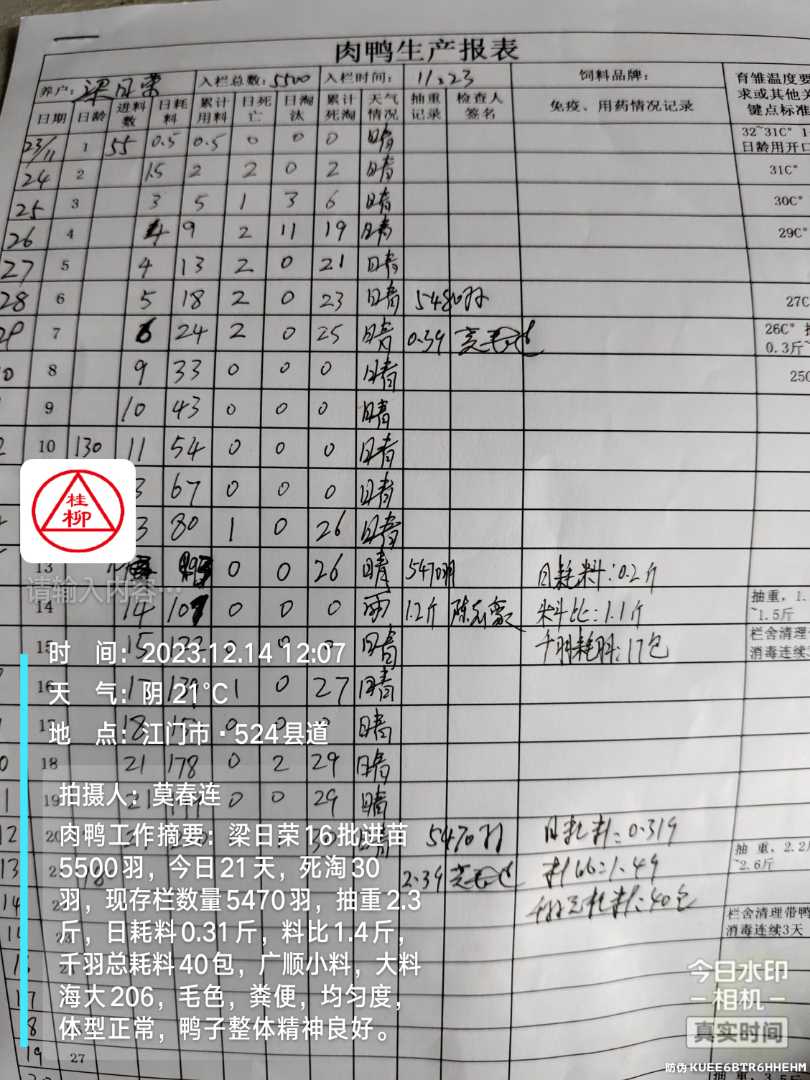 肉鸭生产报表
养户: 梁日荣 入栏总数: 5500 入栏时间: 11.23 饲料品牌: 育雏温度要
求或其他关
键点标准
日期 日龄 进料数 日耗料 累计用料 日死亡 日淘汰 累计死淘 天气情况 抽重记录 检查人签名 免疫、用药情况记录
23/11 1 55 0.5 0.5 0 0 0 晴 32~31C° 1
日龄用开口
24 2 1.5 2 2 0 2 晴 31C°
25 3 3 5 1 3 6 晴 30C°
26 4 4 9 2 11 19 晴 29C°
27 5 4 13 2 0 21 晴
28 6 5 18 2 0 23 晴 5480羽 27C
29 7 6 24 2 0 25 晴 0.39 莫春连 26C°
0.3斤~
8 9 33 0 0 0 晴 25C
9 10 43 0 0 0 晴
10 130 11 54 0 0 0 晴
3 67 0 0 0 晴
3 80 1 0 26 晴
13 0 0 26 晴 5470羽 日耗料:0.2斤
14 14 107 0 0 0 雨 1.2斤 料比:1.1斤 抽重,1.
~1.5斤
15 15 0 0 0 晴 千羽耗料:17包 栏舍清理
消毒连续3
16 17 1 0 27 晴
17 18 0 0 0 晴
18 21 178 0 2 29 晴
19 0 0 29 晴
12 30 晴 5470羽 日耗料:0.319
13 2.39 莫春连 料比:1.49 抽 重,2.2
~2.6斤
14 千羽总耗料:40包 栏舍清理带鸭
消毒连续3天
17
19 27
抽 重,3.5斤
桂柳
请输入内容…
时 间: 2023.12.14 12:07
天 气: 阴 21°C
地 点: 江门市·524县道
拍摄人: 莫春连
肉鸭工作摘要: 梁日荣16批进苗
5500羽，今日21天，死淘30
羽，现存栏数量5470羽，抽重2.3
斤，日耗料0.31斤，料比1.4斤，
千羽总耗料40包，广顺小料，大料
海大206，毛色，粪便，均匀度，
体型正常，鸭子整体精神良好。
今日水印
相机
真实时间
防伪 KUEE6BTR6HHEHM